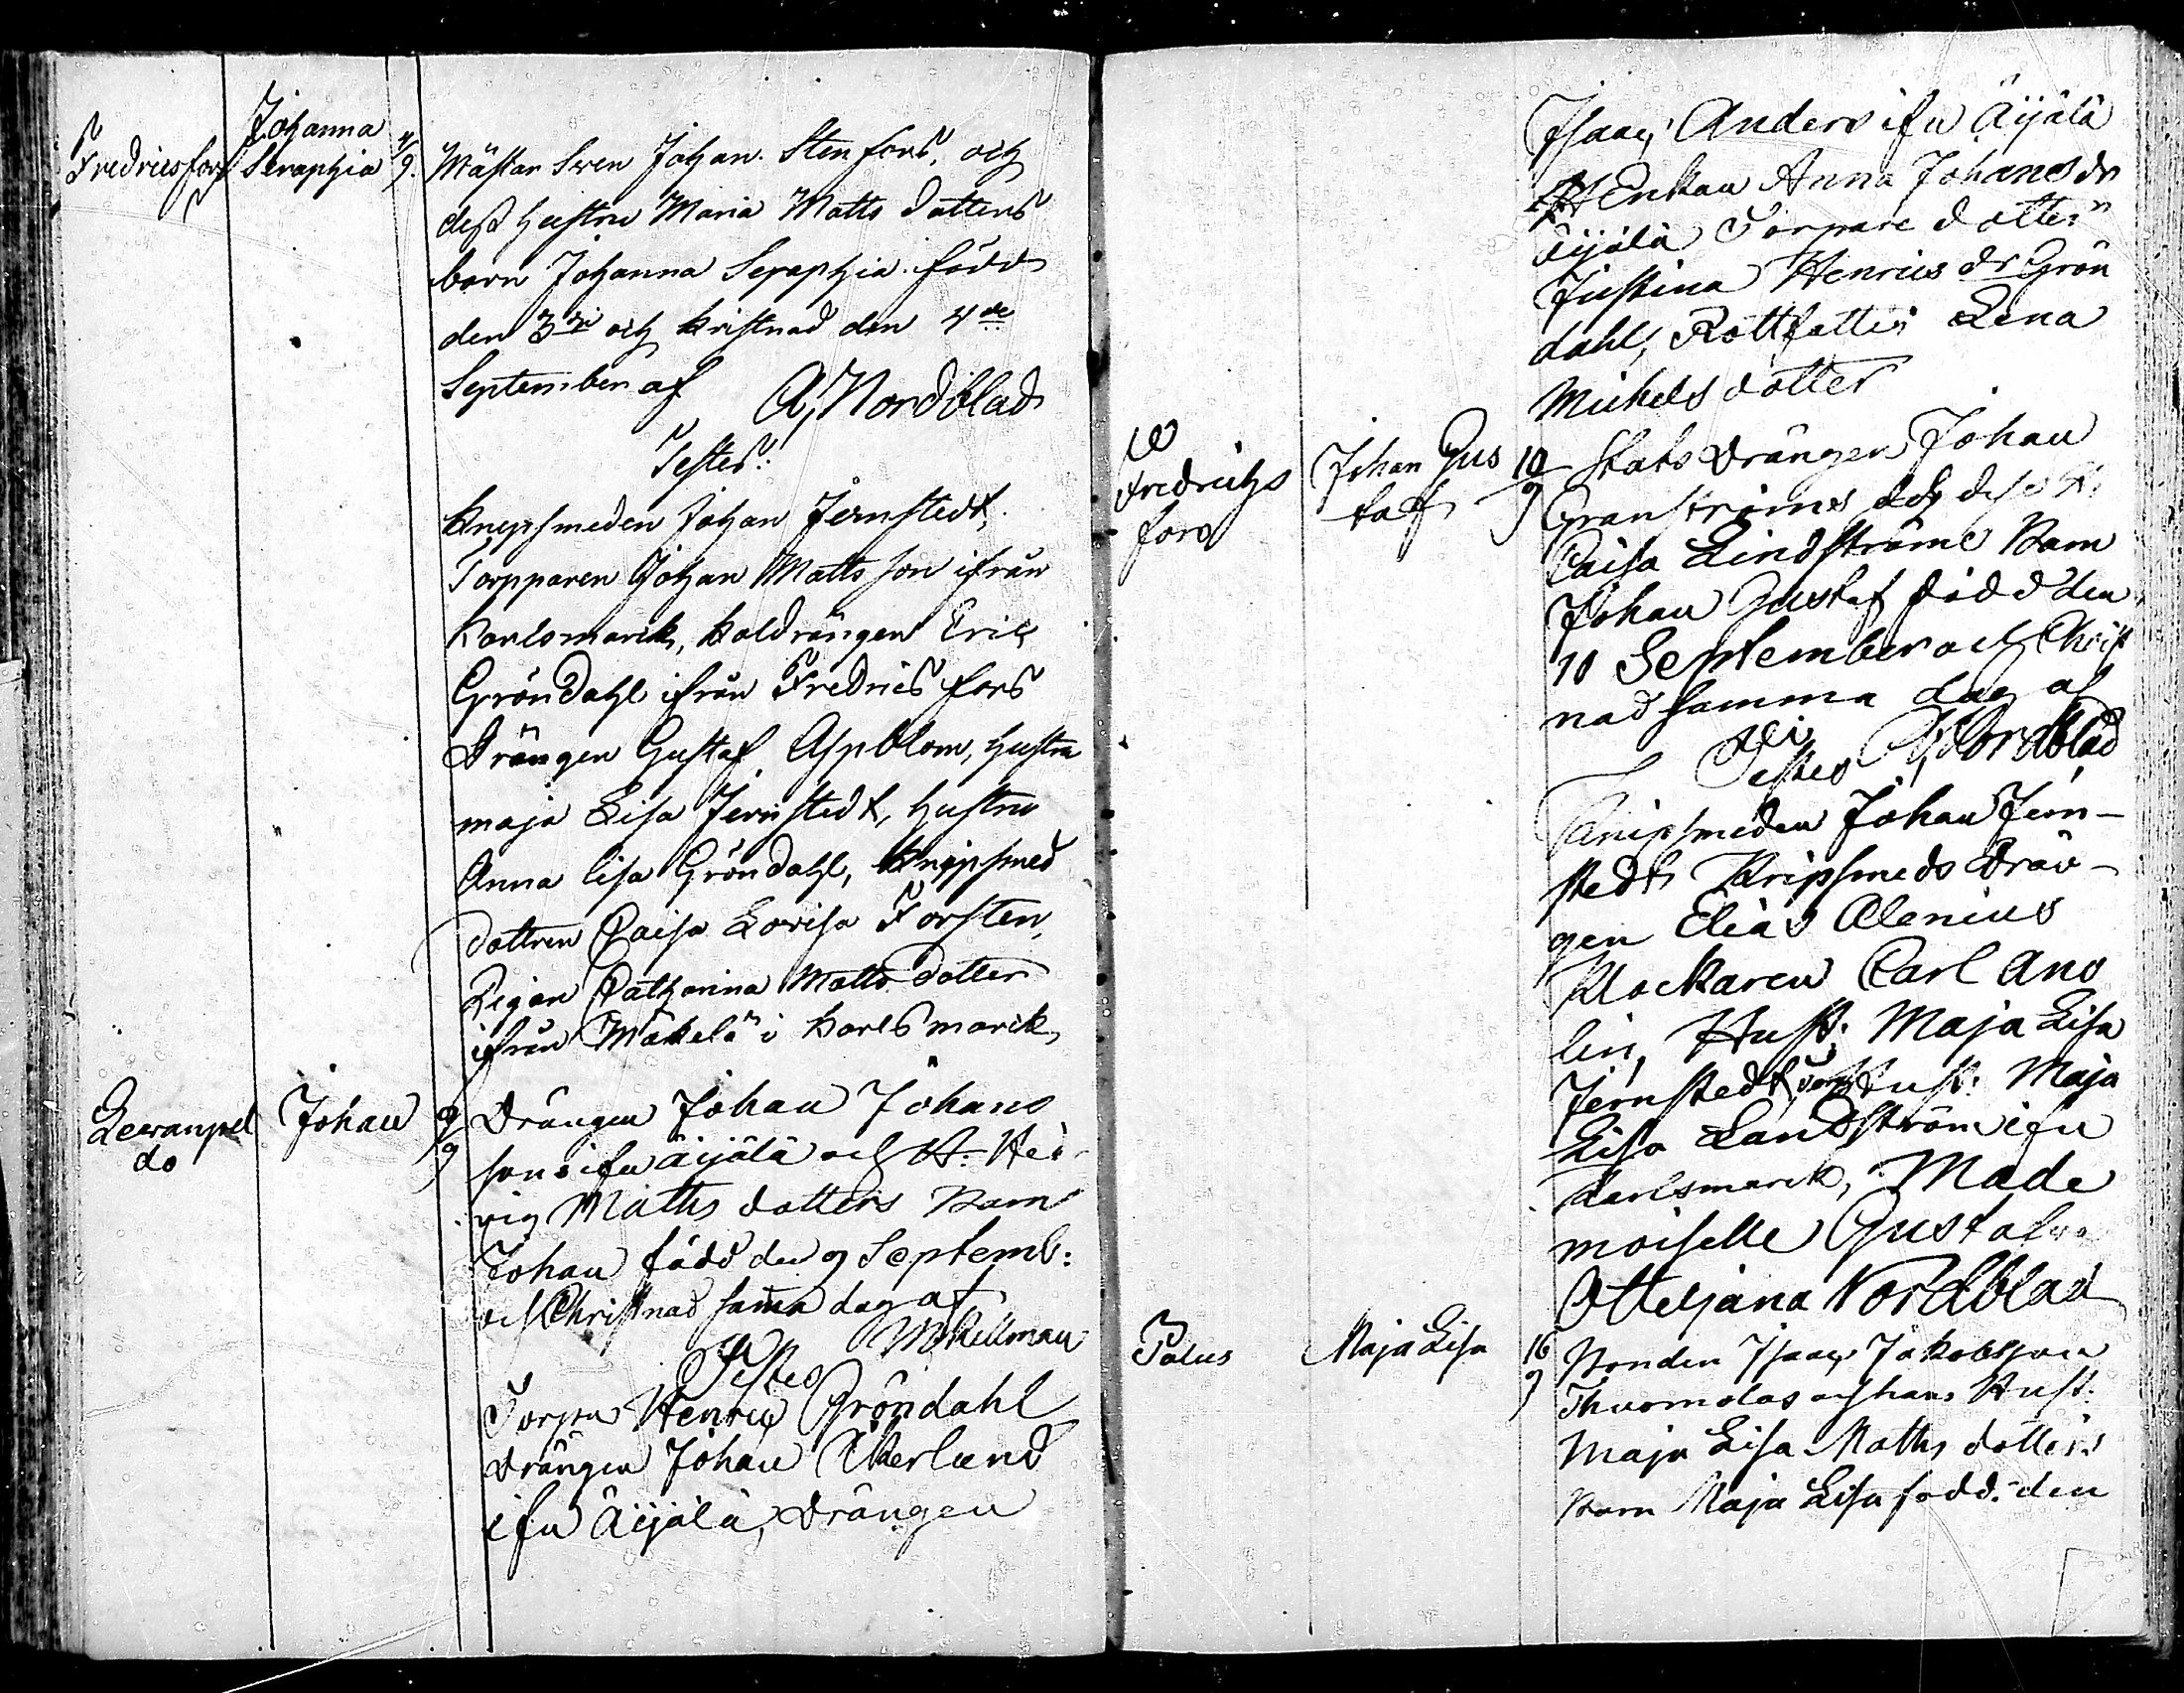 Fredricsfors
Johanna
Seraphia
4/9.
Mästar Sven Johan Stenfors, och
dess hustru Maria Matts dotters
barn Johanna Seraphia född
den 3die och kristnad den 4de
September af A, Nordblad
Testes:
Knippsmeden Johan Jernstedt,
Torpparen Johan Mattsson ifrån
Karlsmarck, Koldrängen Eric
Gröndahl ifrån Fredrics fors
Drängen Gustaf Aspblom, hustru
maja Lisa Jernstedt, hustru
Anna Lisa Gröndahl, Knippsmed
dottren Caisa Lovisa Forsten,
Pigan Catharina Matts dotter
ifrån Mäkelä i Karlsmarck
Lewanpel
do
Johan
9/9
Drängen Johan Johans
sons ifrn Äijälä och H. Hed-
vig Matths dotters Barn
Johan född den 9 Septemb:
och Christnad samma dag af
M Kellman
Testes
Torpn Henric Gröndahl
Drängen Johan Åkerlund
ifrn Äijälä, Drängen
Isaac Anders ifrn Äijälä
Enkan Anna Johansdr
Äijälä Torpare dotter
Justina Henricsdr Grön
dahl, Lena
Michels dotter
Fredrichs
fors
Johan Gus
taf
10/9
Stats Drängen Johan
Granströms och dess H.
Caisa Lindströms Barn
Johan Gustaf född den
10 September och Christ
nad samma dag af
Testes A, Nordblad
Knipsmeden Johan Jern-
stedt Knipsmeds Drän-
gen Elias Alenius
Klockaren Carl Ano
lin, Hust: Maja Lisa
Jernstedt, Hust: Maja
Lisa Landström ifrn
Karlsmarck, Made
moiselle Gustafva
Otteljana Nordblad
Palus
Maja Lisa
16/9
Bonden Isaac Jakobsson
Thuomolas och hans Hust.
Maja Lisa Matths dotters
Barn Maja Lisa född den